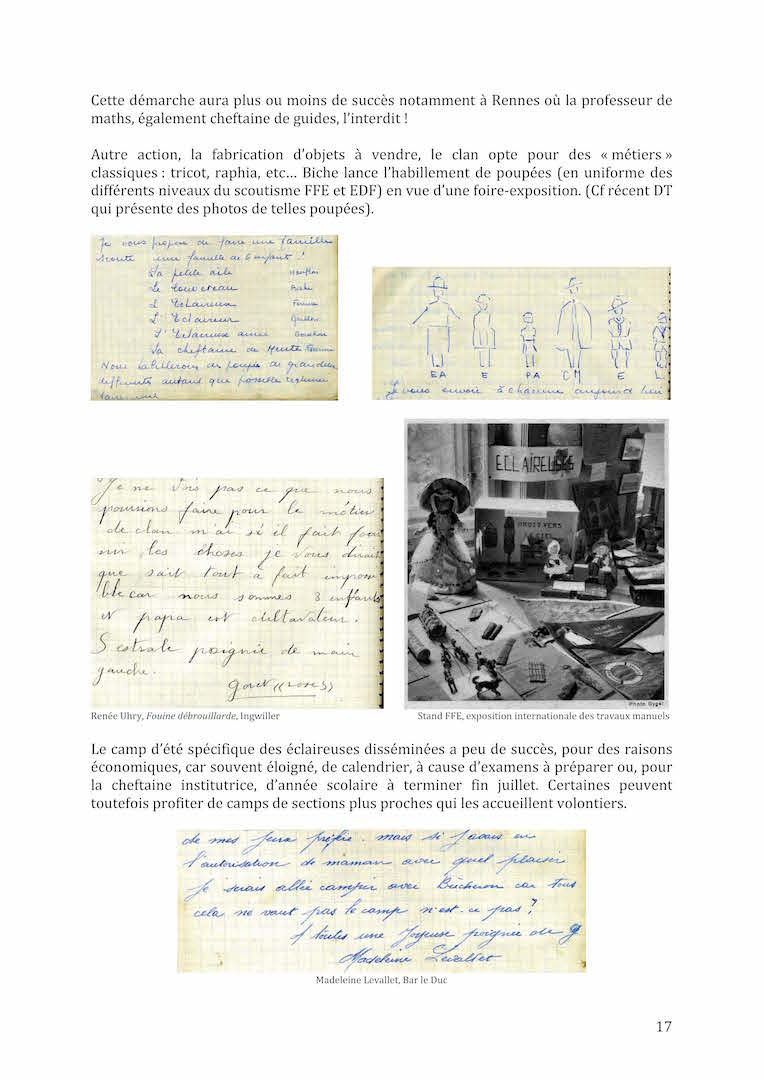 Cette démarche aura plus ou moins de succès notamment à Rennes où la professeur de
maths, également cheftaine de guides, l'interdit !
Autre action, la fabrication d'objets à vendre, le clan opte pour des « métiers »
classiques : tricot, raphia, etc… Biche lance l'habillement de poupées (en uniforme des
différents niveaux du scoutisme FFE et EDF) en vue d'une foire-exposition. (Cf récent DT
qui présente des photos de telles poupées).
Je vous propose de faire une famille
Scoute une famille de 6 enfants !
La petite aile
Le louveteau Biche
L'Eclaireuse Fouine
L'Eclaireur
L'Eclaireuse ainée
La cheftaine de Meute
Nous habillerons des poupées de grandeurs
différentes autant que possible
EA E PA CM E L
Je vous envoie à chacune aujourd'hui
ECLAIREUSES
Je ne vois pas ce que nous
pourrions faire pour le métier
de clan m'ai si il faut
les choses je vous dirais
que sait tout à fait impos
ble car nous sommes 3 enfants
et papa est cultivateur.
Sestrale poignée de main
gauche.
Photo Gyger
Renée Uhry, Fouine débrouillarde, Ingwiller
Stand FFE, exposition internationale des travaux manuels
Le camp d'été spécifique des éclaireuses disséminées a peu de succès, pour des raisons
économiques, car souvent éloigné, de calendrier, à cause d'examens à préparer ou, pour
la cheftaine institutrice, d'année scolaire à terminer fin juillet. Certaines peuvent
toutefois profiter de camps de sections plus proches qui les accueillent volontiers.
de mes jeux préféré. mais si j'avais eu
l'autorisation de maman avec quel plaisir
je serais allée camper avec Bûcheron car tous
cela ne vaut pas le camp n'est-ce pas ?
A toutes une Joyeuse poignée de g
Madeleine Levallet
Madeleine Levallet, Bar le Duc
17